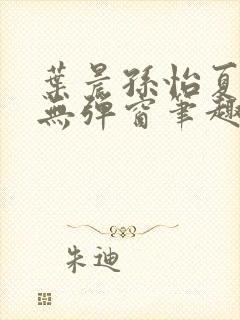 葉晨孫怡夏
無彈窗筆趣
朱迪